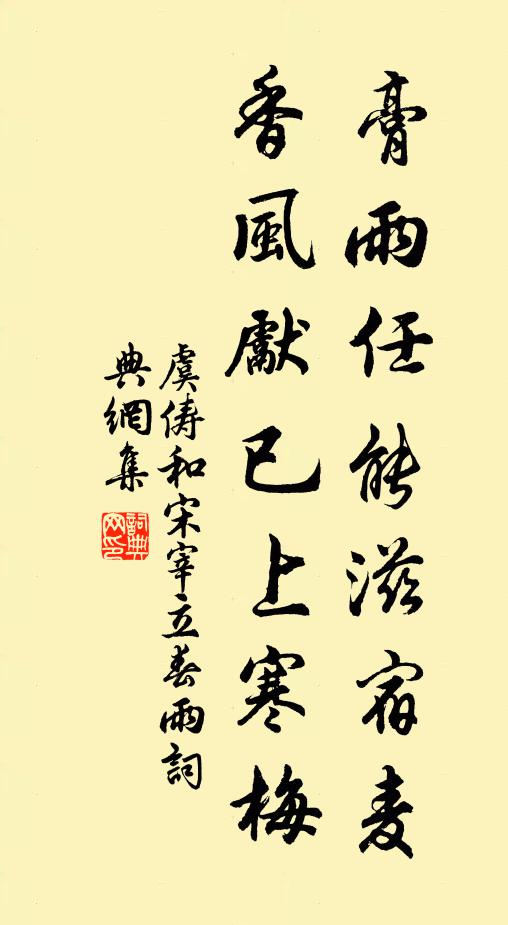 膏雨任能滋宿麦
香風獻已上寒梅
虞俦和宋宰立春雨詞
典網集
詞典
网印